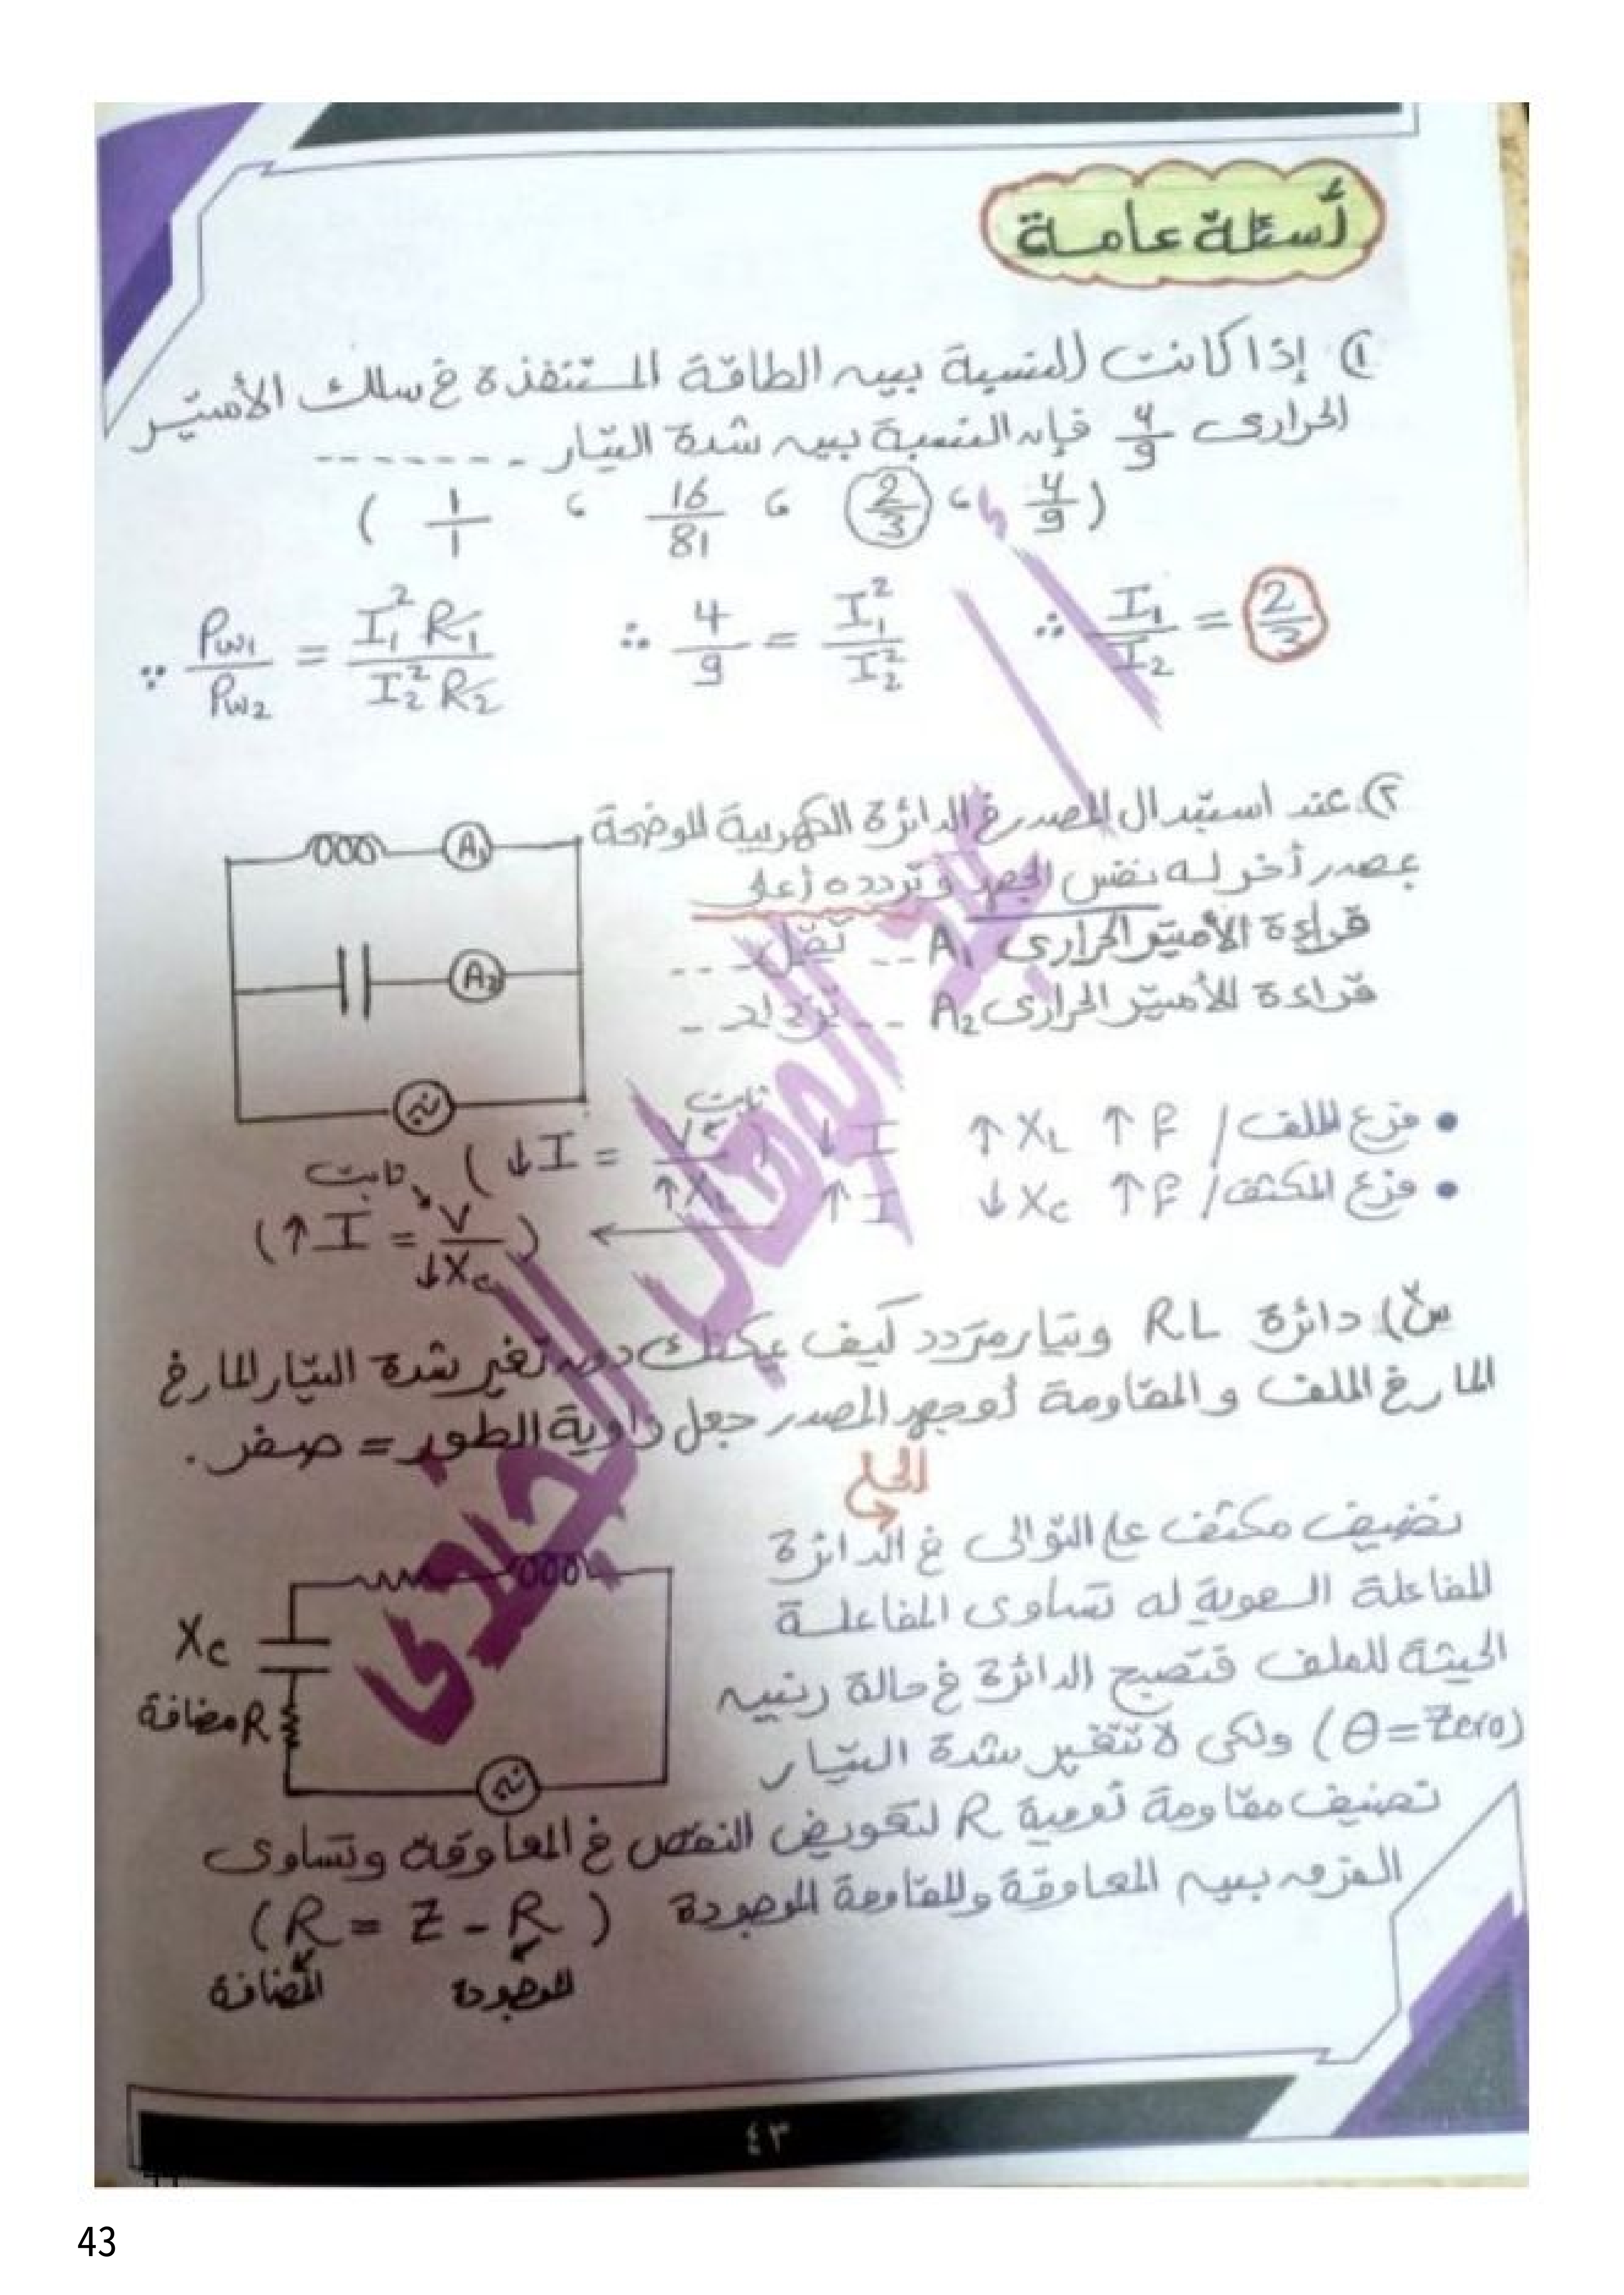 أسئلة عامة
① إذا كانت النسبة بين الطاقة المستنفذة في سلك الأميتر
الحرارى 4/9 فإن النسبة بين شدة التيار -------
( 4/9 ، 2/3 ، 16/81 ، 1/1 )
∵ Pw1/Pw2 = I₁² R₁/I₂² R₂ ∴ 4/9 = I₁²/I₂² ∴ I₁/I₂ = 2/3
② عند استبدال المصدر في الدائرة الكهربية الموضحة
بمصدر أخر له نفس الجهد وتردده أعلى
قراءة الأميتر الحرارى A₁ -- تقل ---
قراءة الأميتر الحرارى A₂ -- تزداد --
A₁
A₂
• فرع الملف / ↑ F ↑ XL ↓ I (↓I = V/↑XL) ثابت
• فرع المكثف / ↑ F ↓ Xc ↑ I ← (↑I = V/↓Xc) ثابت
س) دائرة RL وتيار متردد كيف يمكنك دون تغير شدة التيار المار في
المار في الملف والمقاومة أو جهد المصدر جعل زاوية الطور = صفر .
الحل
نضيف مكثف على التوالى في الدائرة
المفاعلة السعوية له تساوى المفاعلة
الحيثة للملف فتصبح الدائرة في حالة رنين
(θ = Zero) ولكى لا تتغير شدة التيار
تضيف مقاومة أومية R لتعويض النقص في المعاوقة وتساوى
الفرق بين المعاوقة والمقاومة الموجودة (R = Z - R)
المضافة الموجودة
Xc
R مضافة
عبد الوهاب الجندى
٤٣
43